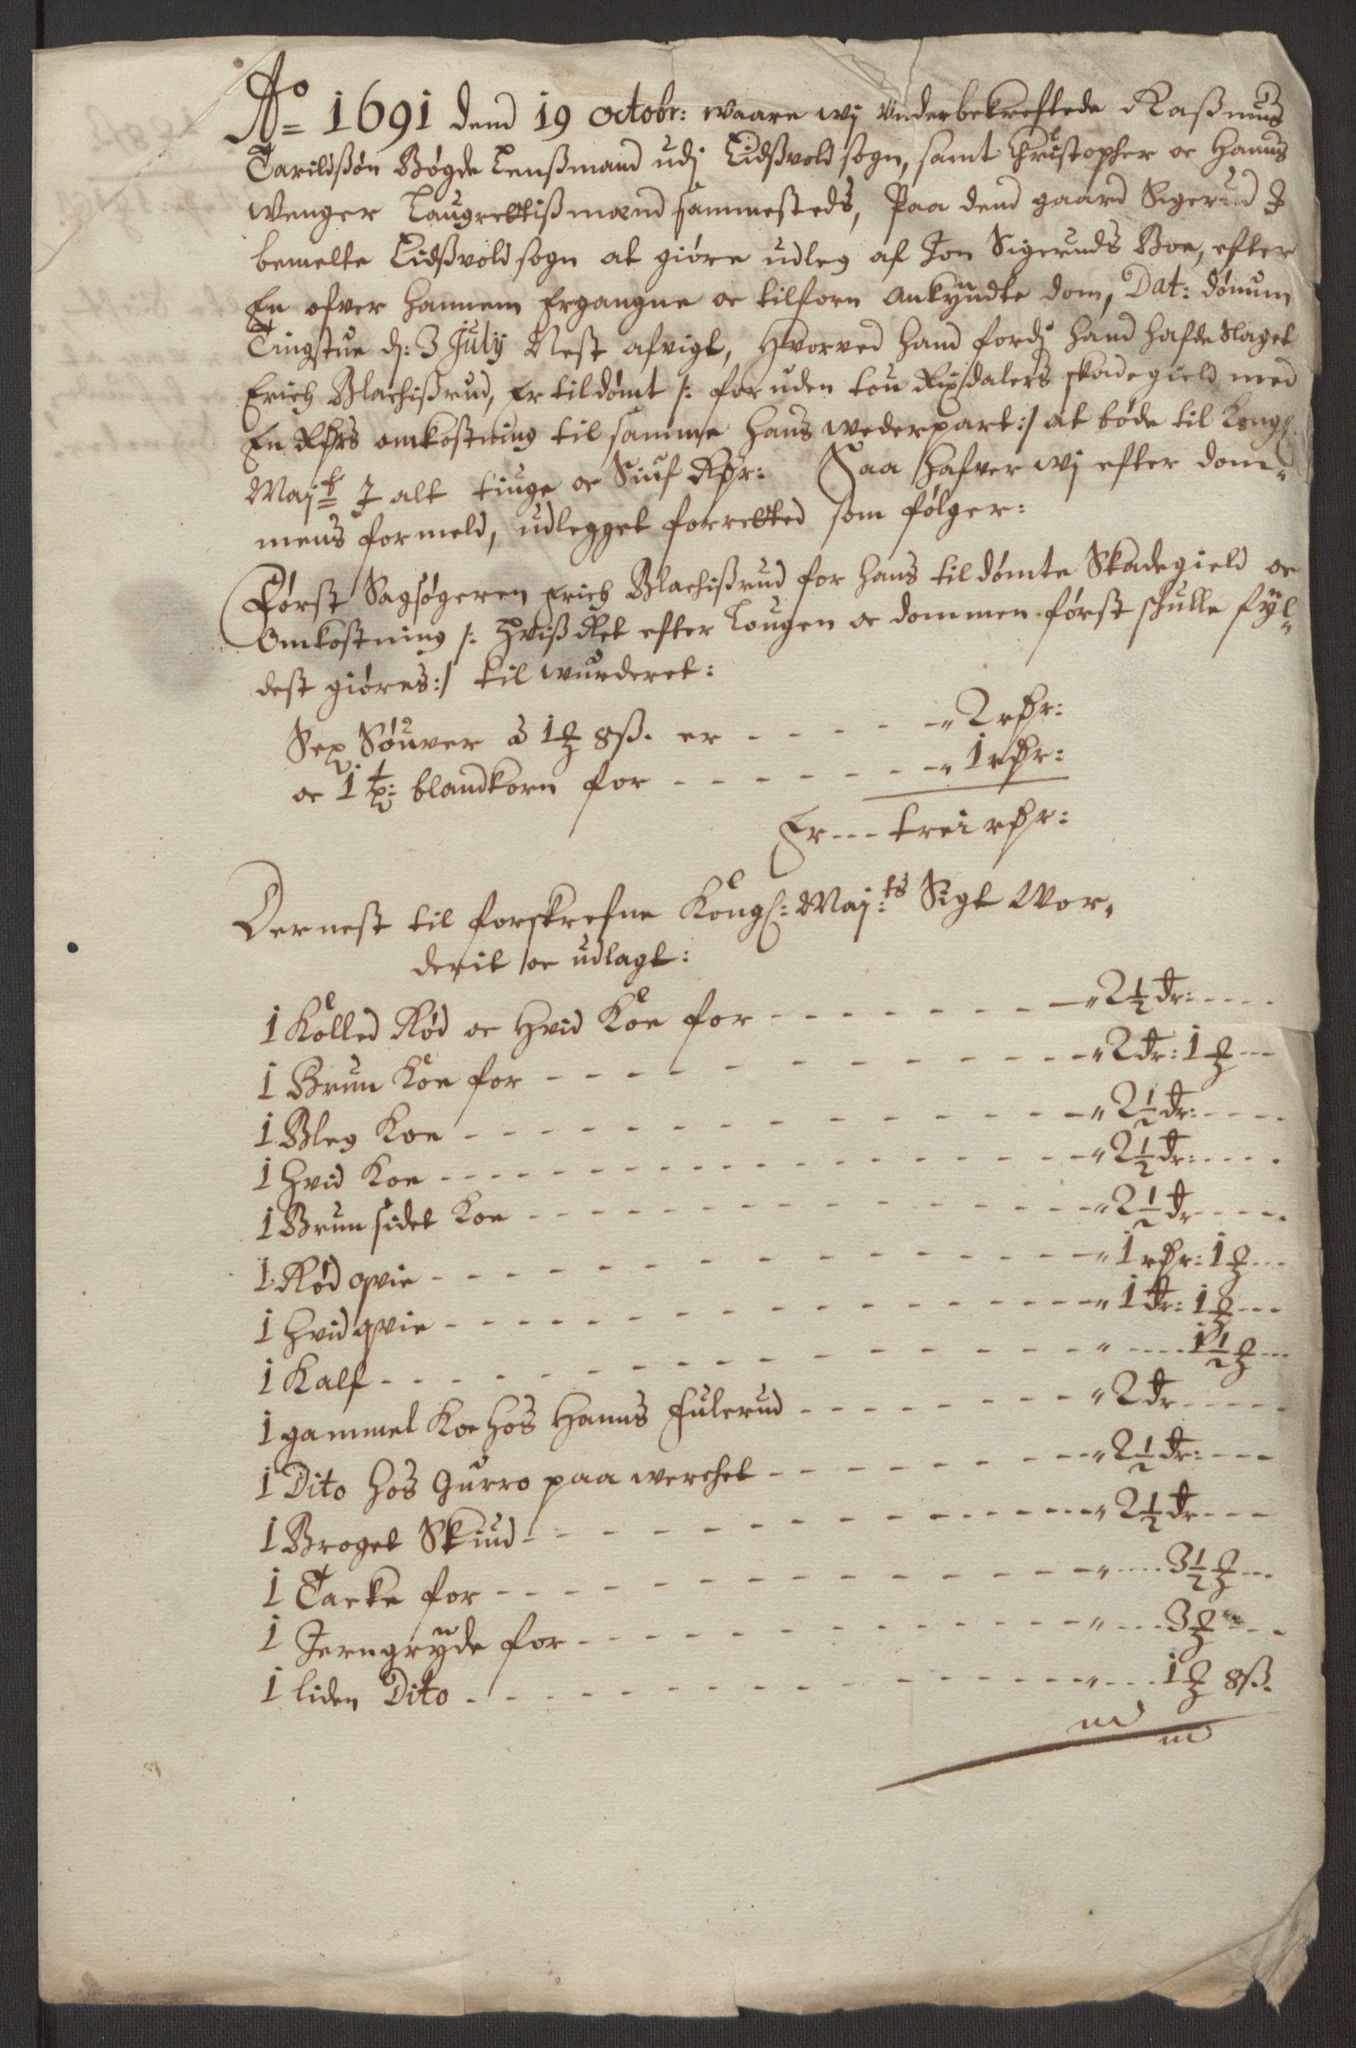 Ao 1691 dend 19 octobr: waare wj underbekreftede Raßmus
Tarildßøn Bøgde Lenßmand udj Eidßvold sogn, samt Christopher oc Hanns
Wenger Laugrettißmænd sammesteds, Paa dend gaard Sigerud J
bemelte Eidßvold sogn at giøre udleg af Jon Sigeruds Boe, efter
En ofver hannem Ergangne oc tilforn ankyndte dom, Dat: dønum
Tingstue d: 3 July Nest afvigt, Hvorved hand fordj hand hafde slaget
Erich Blachißrud, Er tildømt /: foruden tou Rixdalers skadegield med
En Rdrs omkostning til samme hans wederpart :/ at bøde til Kongl:
Mayt J alt tiuge oc Siuf Rdr: Saa hafver wj efter dom-
mens formeld, udlegget forretted som følger:
Først Sagsøgeren Erich Blachißrud for hans tildømte Skadegield oc
Omkostning /: Hviß Ret efter Lougen oc dommen først schulle fyl-
dest giøres :/ til wurderet:
Sex Søuver à 1 ƺ 8 ß. er - - - - - 2 rdr:
oc 1 tp: blandkorn for - - - - - - - 1 rdr:
Er - - - trei rdr:
Dernest til forskrefne Kongl: Maj:ts Sigt Wor-
derit oc udlagt:
1 Kolled Rød oc Hvid Koe for - - - - - - - 2½ dr: - - - -
1 Brun Koe for - - - - - - - - - - 2 dr: 1 ƺ - -
1 Bleg Koe - - - - - - - - - - - 2½ dr: - - - -
1 Hvid Koe - - - - - - - - - - - 2½ dr: - - - -
1 Brun sidet Koe - - - - - - - - - - 2½ dr - - - -
1 Rød qvie - - - - - - - - - - - 1 rdr: 1 ƺ - -
1 Hvid qvie - - - - - - - - - - - 1 dr: 1 ƺ - -
1 Kalf - - - - - - - - - - - 1½ ƺ - -
1 gammel Koe hos Hanns Julerud - - - - - - - 2 dr - - - -
1 Dito hos Gurro paa werchet - - - - - - - 2½ dr: - - -
1 Broget Stiud - - - - - - - - - - 2½ dr - - -
1 Tacke for - - - - - - - - - - - 3½ ƺ - -
1 Jerngryde for - - - - - - - - - - 3 ƺ - - -
1 liden Dito - - - - - - - - - - - 1 ƺ 8 ß.